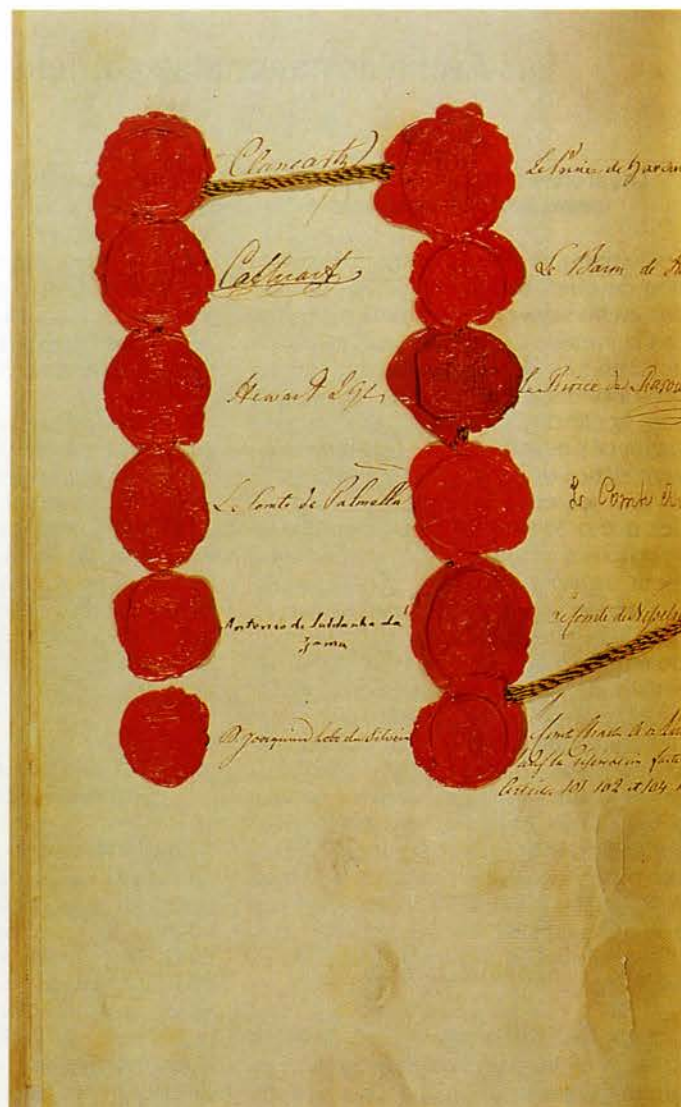 Clancarty
Cathcart
Stewart L G
Le Comte de Palmella
Antonio de Saldanha da
Gama
D. Joaquim Lobo da Silveira
Le Prince de Harden
Le Baron de
Le Prince de Rasou
Le Comte
Le Comte de Nesselr
articles 101 102 et 104